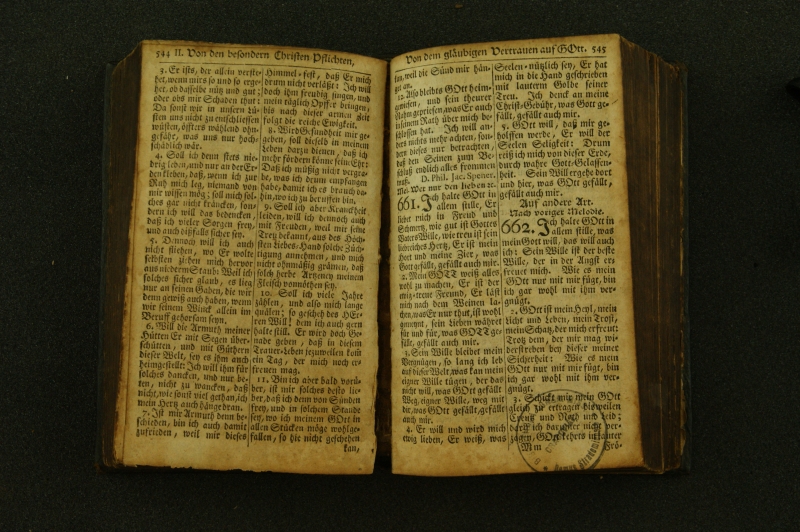 544 II. Von den besondern Christen Pflichten,
3. Er ists, der allein verste-
het, wenn mirs so und so erge-
het, ob dasselbe nütz und gut;
oder obs mir Schaden thut:
Da sonst wir in unsern Lü-
sten uns nicht zu entschliessen
wüsten, öffters wählend ohn-
gefähr, was uns nur hoch-
schädlich wär.
4. Soll ich denn stets nie-
drig leben, und nur an der Er-
den kleben, daß, wenn ich zur
Ruh mich leg, niemand von
mir wissen mög; soll mich sol-
ches gar nicht kräncken, son-
dern ich will das bedencken,
daß ich vieler Sorgen frey,
und auch dißfalls sicher sey.
5. Dennoch will ich auch
nicht fliehen, wo Er wolte
selbsten ziehen mich hervor
aus niederm Staub: Weil ich
solches sicher glaub, es lieg
nur an seinen Gaben, die wir
denn gewiß auch haben, wenn
wir seinen Winck allein im
Beruff gehorsam seyn.
6. Will die Armuth meiner
Hütten Er mit Segen über-
schütten, und mit Güthern
dieser Welt, sey es ihm auch
heimgestellt: Ich will ihm für
solches dancken, und nur be-
ten, nicht zu wancken, daß
nicht, wie sonst viel gethan, ich
mein Hertz auch hänge dran.
7. Ist mir Armuth denn be-
schieden, bin ich auch damit
zufrieden, weil mir dieses
Himmel-fest, daß Er mich
drum nicht verläßt: Ich will
doch ihm freudig singen, und
mein täglich Opffer bringen,
bis nach dieser armen Zeit
folgt die reiche Ewigkeit.
8. Wird Gesundheit mir ge-
geben, soll dieselb in meinem
Leben darzu dienen, daß ich
mehr fördern könne sein Ehr:
Daß ich müßig nicht vergra-
be, was ich drum empfangen
habe, damit ich es brauch da-
hin, wo ich zu beruffen bin.
9. Soll ich aber Kranckheit
leiden, will ich dennoch auch
mit Freuden, weil mir seine
Treu bekannt, aus des Höch-
sten Liebes-Hand solche Züch-
tigung annehmen, und mich
nicht ohnmäßig grämen, daß
solch herbe Artzeney meinem
Fleisch vonnöthen sey.
10. Soll ich viele Jahr
zählen, und also mich lange
quälen; so gescheh des HEr-
ren Will; dem ich auch gern
halte still. Er wird doch Ge-
nade geben, daß in diesem
Trauer-Leben zuweilen kom̃
ein Tag, der mich noch er-
freuen mag.
11. Bin ich aber bald vorü-
ber, ist mir solches desto lie-
ber, daß ich denn von Sünden
frey, und in solchem Stande
sey, wo ich meinem GOtt in
allen Stücken möge wohlge-
fallen, so hie nicht geschehen
kan,
Von dem gläubigen Vertrauen auf GOtt. 545
kan, weil die Sünd mir hän-
get an.
12. Also bleibts GOtt heim-
gewiesen, und sein theurer
Nahm gepriesen, was Er auch
in seinem Rath über mich be-
schlossen hat. Ich will an-
ders nichts mehr achten, son-
dern dieses nur betrachten,
daß den Seinen zum Be-
schluß endlich alles frommen
muß.
D. Phil. Jac. Spener.
Mel. Wer nur den lieben ꝛc.
661. Ich halte GOtt in
allem stille, Er
liebet mich in Freud und
Schmertz, wie gut ist Gottes
Vaters Wille, wie treu ist sein
liebreiches Hertz, Er ist mein
Hort und meine Zier, was
Gott gefällt, gefällt auch mir.
2. Mein GOTT weiß alles
wohl zu machen, Er ist der
einzig-treue Freund, Er läst
mich nach dem Weinen la-
chen, was Er nur thut, ist wohl
gemeynt, sein Lieben währet
für und für, was GOTT ge-
fällt, gefällt auch mir.
3. Sein Wille bleibet mein
Vergnügen, so lang ich leb
auf dieser Welt, was kan mein
eigner Wille tügen, der das
nicht will, was GOtt gefällt
Weg, eigner Wille, weg mit
dir, was GOtt gefällt, gefällt
auch mir.
4. Er will und wird mich
ewig lieben, Er weiß, was
Seelen-nützlich sey, Er hat
mich in die Hand geschrieben
mit lauterm Golde seiner
Treu. Ich denck an meine
Christ-Gebühr, was Gott ge-
fällt, gefällt auch mir.
5. GOtt will, daß mir ge-
holffen werde, Er will der
Seelen Seligkeit: Drum
reiß ich mich von dieser Erde,
durch wahre Gott-Gelassen-
heit. Sein Will ergehe dort
und hier, was GOtt gefällt,
gefällt auch mir.
Auf andere Art.
Nach voriger Melodie.
662. Ich halte GOtt in
allem stille, was
mein Gott will, das will auch
ich: Sein Wille ist der beste
Wille, der in der Angst er-
freuet mich. Wie es mein
GOtt nur mit mir fügt, bin
ich gar wohl mit ihm ver-
gnügt.
2. GOtt ist mein Heyl, mein
Licht und Leben, mein Trost,
mein Schatz, der mich erfreut:
Trotz dem, der mir mag wi-
derstreben bey dieser meiner
Sicherheit: Wie es mein
GOtt nur mit mir fügt, bin
ich gar wohl mit ihm ver-
gnügt.
3. Schickt mir mein GOtt
gleich zu ertragen bisweilen
Creutz und Noth und Leid;
darff ich darunter nicht ver-
zagen, GOtt kehrts in lauter
Mm Frö-